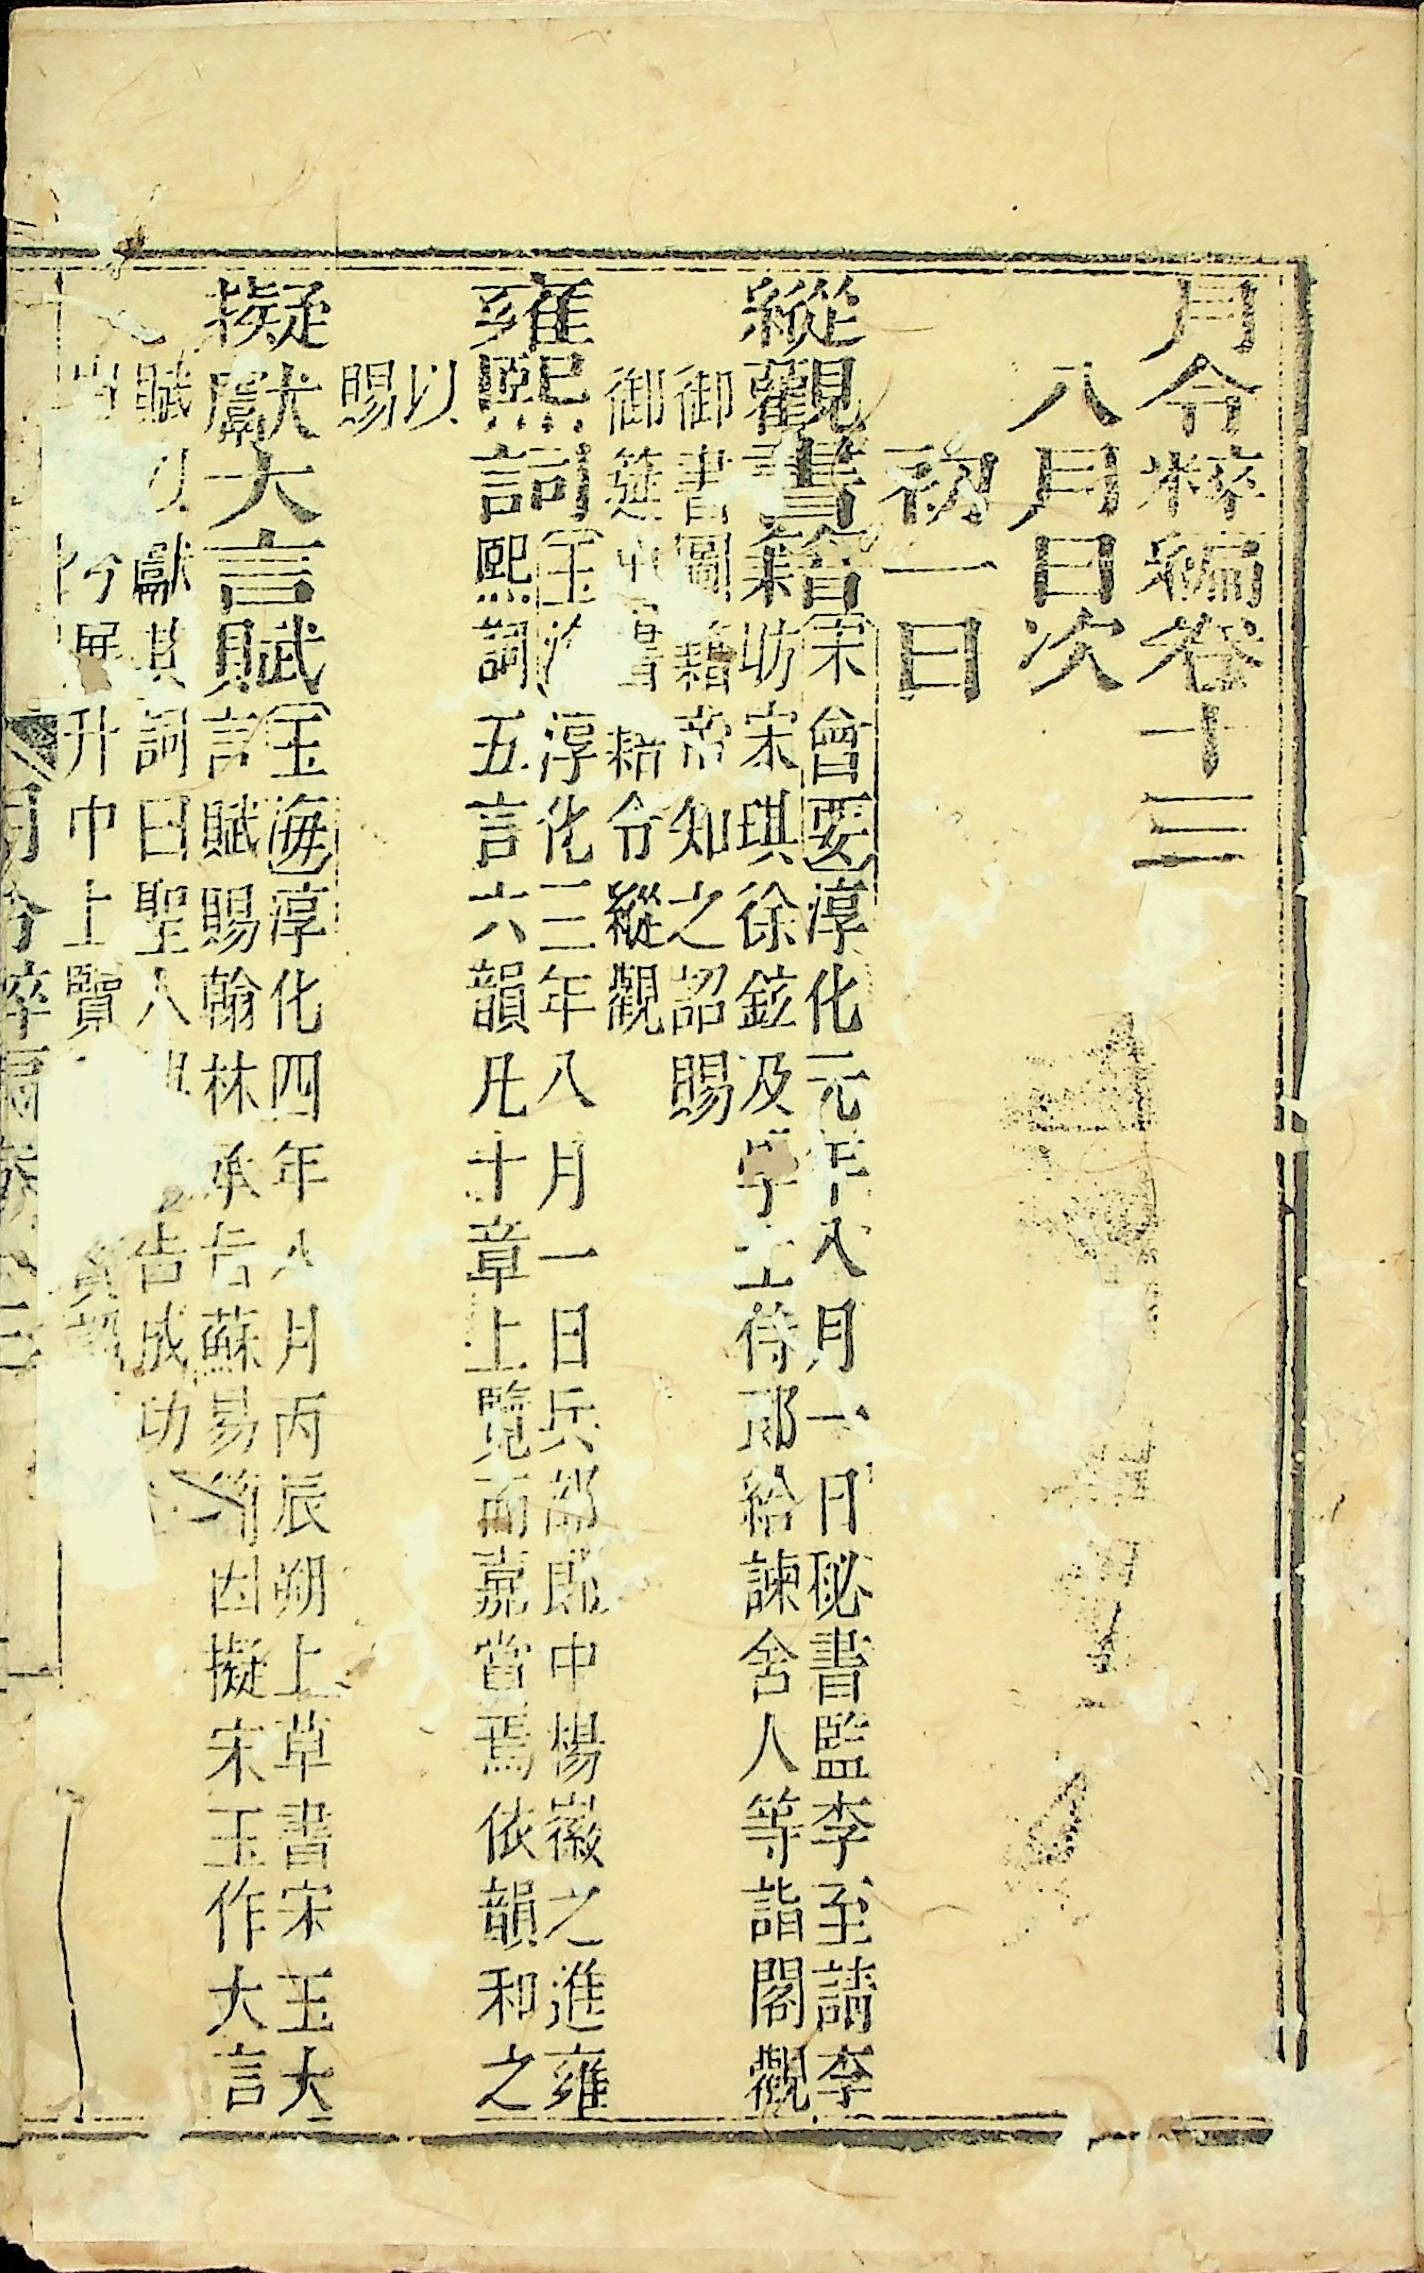 月令粹編卷十三
八月日次
初一日
縱觀書籍宋會要淳化元年八月一日秘書監李至請李
昉宋琪徐鉉及學士侍郎給諫舍人等詣閣觀
御書圖籍帝知之詔賜
御筵 書籍令縱觀
雍熙詞玉海淳化三年八月一日兵部郎中楊徽之進雍
熙詞五言六韻凡十章上覽而嘉賞焉依韻和之
以
賜
擬獻大言賦玉海淳化四年八月丙辰朔上草書宋玉大
言賦賜翰林承旨蘇易簡因擬宋玉作大言
賦以獻其詞曰聖人 告成功
兮 升中上覽
月令粹編卷十三